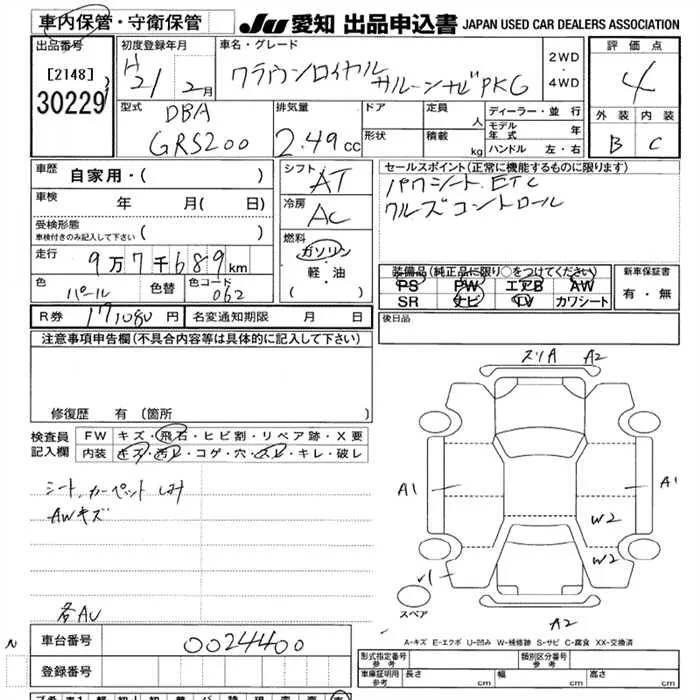 車内保管・守衛保管
JU 愛知 出品申込書 JAPAN USED CAR DEALERS ASSOCIATION
出品番号
[2148]
30229
初度登録年月
H21 2月
車名・グレード
クラウンロイヤル サルーンナビPKG
2WD
・
4WD
評価点
4
外装 内装
B C
型式
DBA
GRS200
排気量
2.49cc
ドア
形状
定員 人
積載 kg
ディーラー・並行
モデル年式 年
ハンドル 左・右
車歴
自家用・( )
車検 年 月( 日)
受検形態
車検付きのみ記入して下さい ( )
走行 9万7千689km
色 パール 色替 色コード 062
シフト
AT
冷房
AC
燃料
ガソリン
軽・油
( )
セールスポイント(正常に機能するものに限ります)
パワシート.ETC
クルーズコントロール
装備品(純正品に限り○をつけてください)
PS PW エアB AW
SR ナビ TV カワシート
新車保証書
有・無
R券 17,080円 名変通知期限 月 日
後日品
注意事項申告欄(不具合内容等は具体的に記入して下さい)
修復歴 有(箇所
検査員
記入欄
FW キズ・飛石・ヒビ割・リペア跡・X要
内装 キズ・汚レ・コゲ・穴・スレ・キレ・破レ
シート、カーペットしみ
AWキズ
各AU
スリA A2
A1
A1
W2
W2
√1
スペア
A2
A-キズ E-エクボ U-凹み W-補修跡 S-サビ C-腐食 XX-交換済
N
車台番号 0024400
登録番号
型式指定番号
参考
類別区分番号
参考
車庫証明用
参考
長さ cm 幅 cm 高さ cm